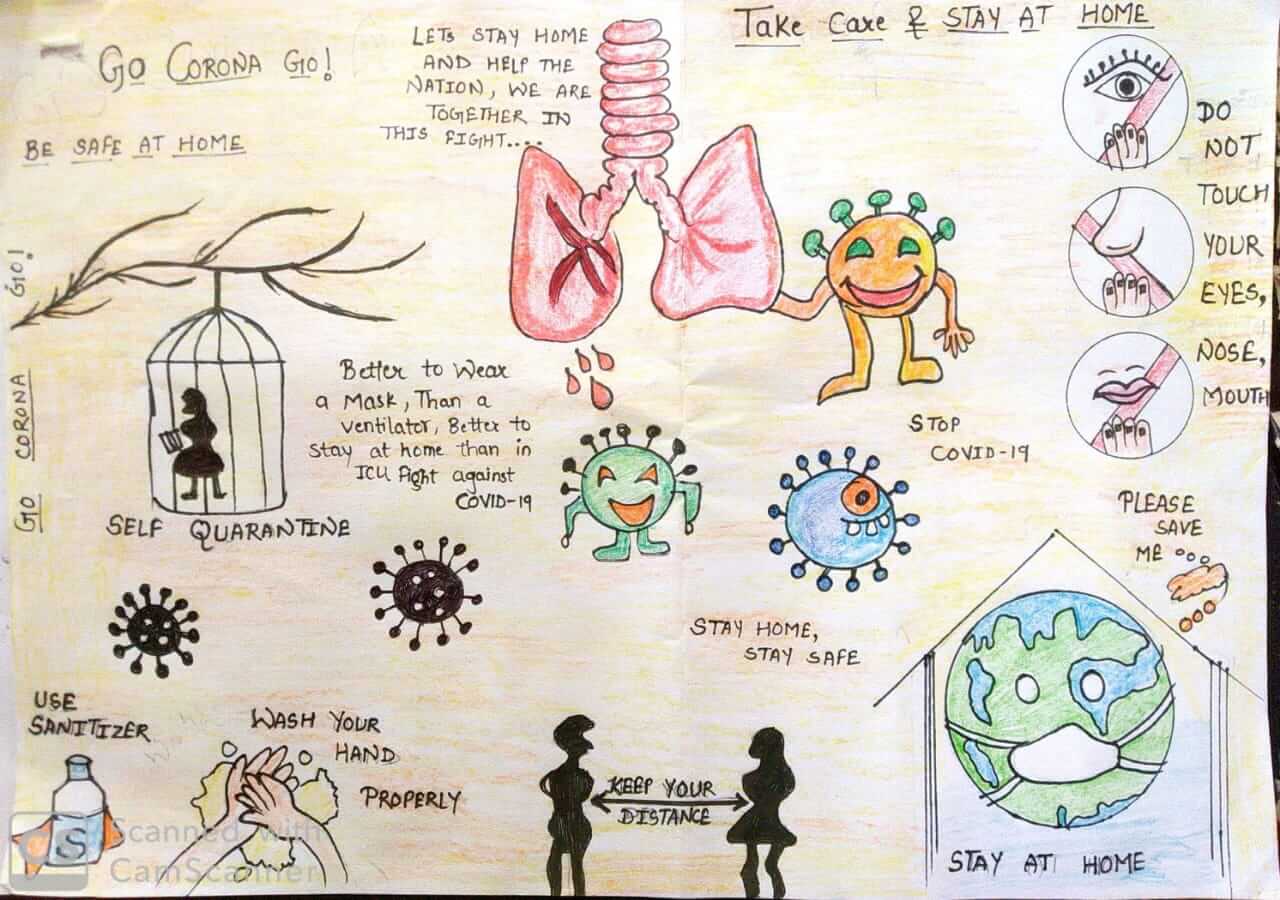 GO CORONA GO!
BE SAFE AT HOME
LETS STAY HOME
AND HELP THE
NATION, WE ARE
TOGETHER IN
THIS FIGHT....
Take Care & STAY AT HOME
DO
NOT
TOUCH
YOUR
EYES,
NOSE,
MOUTH
GO CORONA GO!
SELF QUARANTINE
Better to Wear
a Mask, Than a
ventilator, Better to
stay at home than in
ICU Fight against
COVID-19
STOP
COVID-19
PLEASE
SAVE
ME
STAY HOME,
STAY SAFE
USE
SANITIZER
S
WASH YOUR
HAND
PROPERLY
KEEP YOUR
DISTANCE
STAY AT HOME
CS
Scanned with
CamScanner